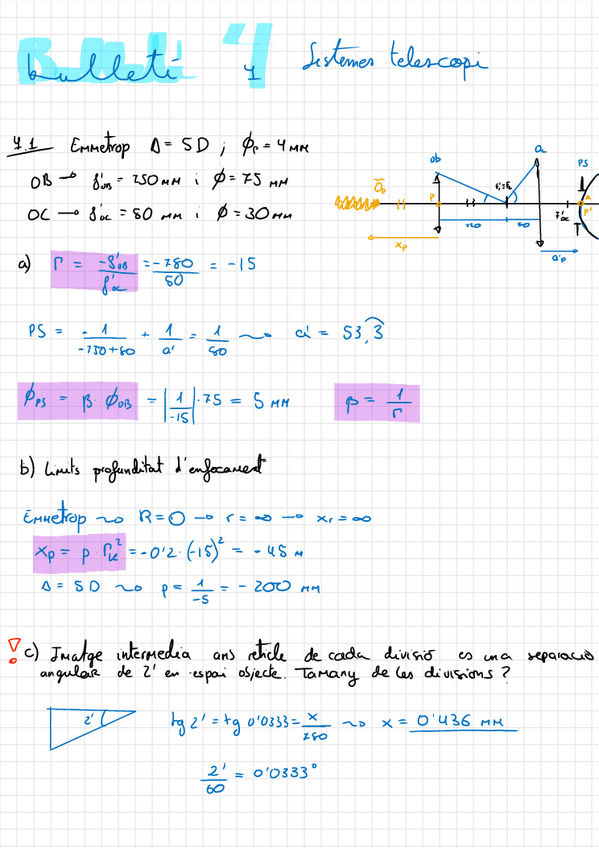 Butlletí 4 Sistemes telescopi
4.1 Emmetrop A = 5 D ; ϕp = 4 mm
OB → f'OB = 750 mm i ϕ = 75 mm
OC → f'OC = 50 mm i ϕ = 30 mm
ob
oc
PS
P
P'
F'oc
750
50
xp
a'p
a) Γ = -f'OB / f'OC = -750 / 50 = -15
PS = - 1 / -750+50 + 1 / a' = 1 / 50 ⤳ a' = 53,3
ϕPS = β · ϕOB = | 1 / -15 | · 75 = 5 mm β = 1 / Γ
b) Límits profunditat d'enfocament
Emmetrop ⤳ R = 0 → r = ∞ → xr = ∞
xp = p · Γ² = -0'2 · (-15)² = -45 m
A = 5 D ⤳ p = 1 / -5 = -200 mm
c) Imatge intermedia ans reticle de cada divisió es una separació
angular de 2' en espai objecte. Tamany de les divisions?
2' tg 2' = tg 0'0333 = x / 750 ⤳ x = 0'436 mm
2' / 60 = 0'0333°